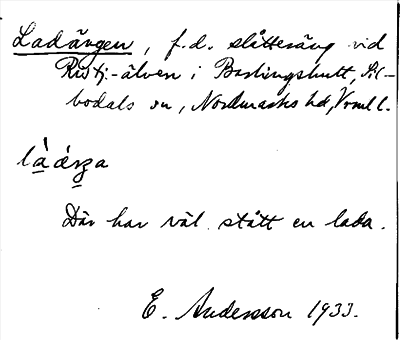 Ladängen, f.d. slåtteräng vid
-älven i Barlingshult, Sil-
bodals sn, Nordmarks hd, Vrml.
Där har väl stått en lada.
E. Andersson 1933.